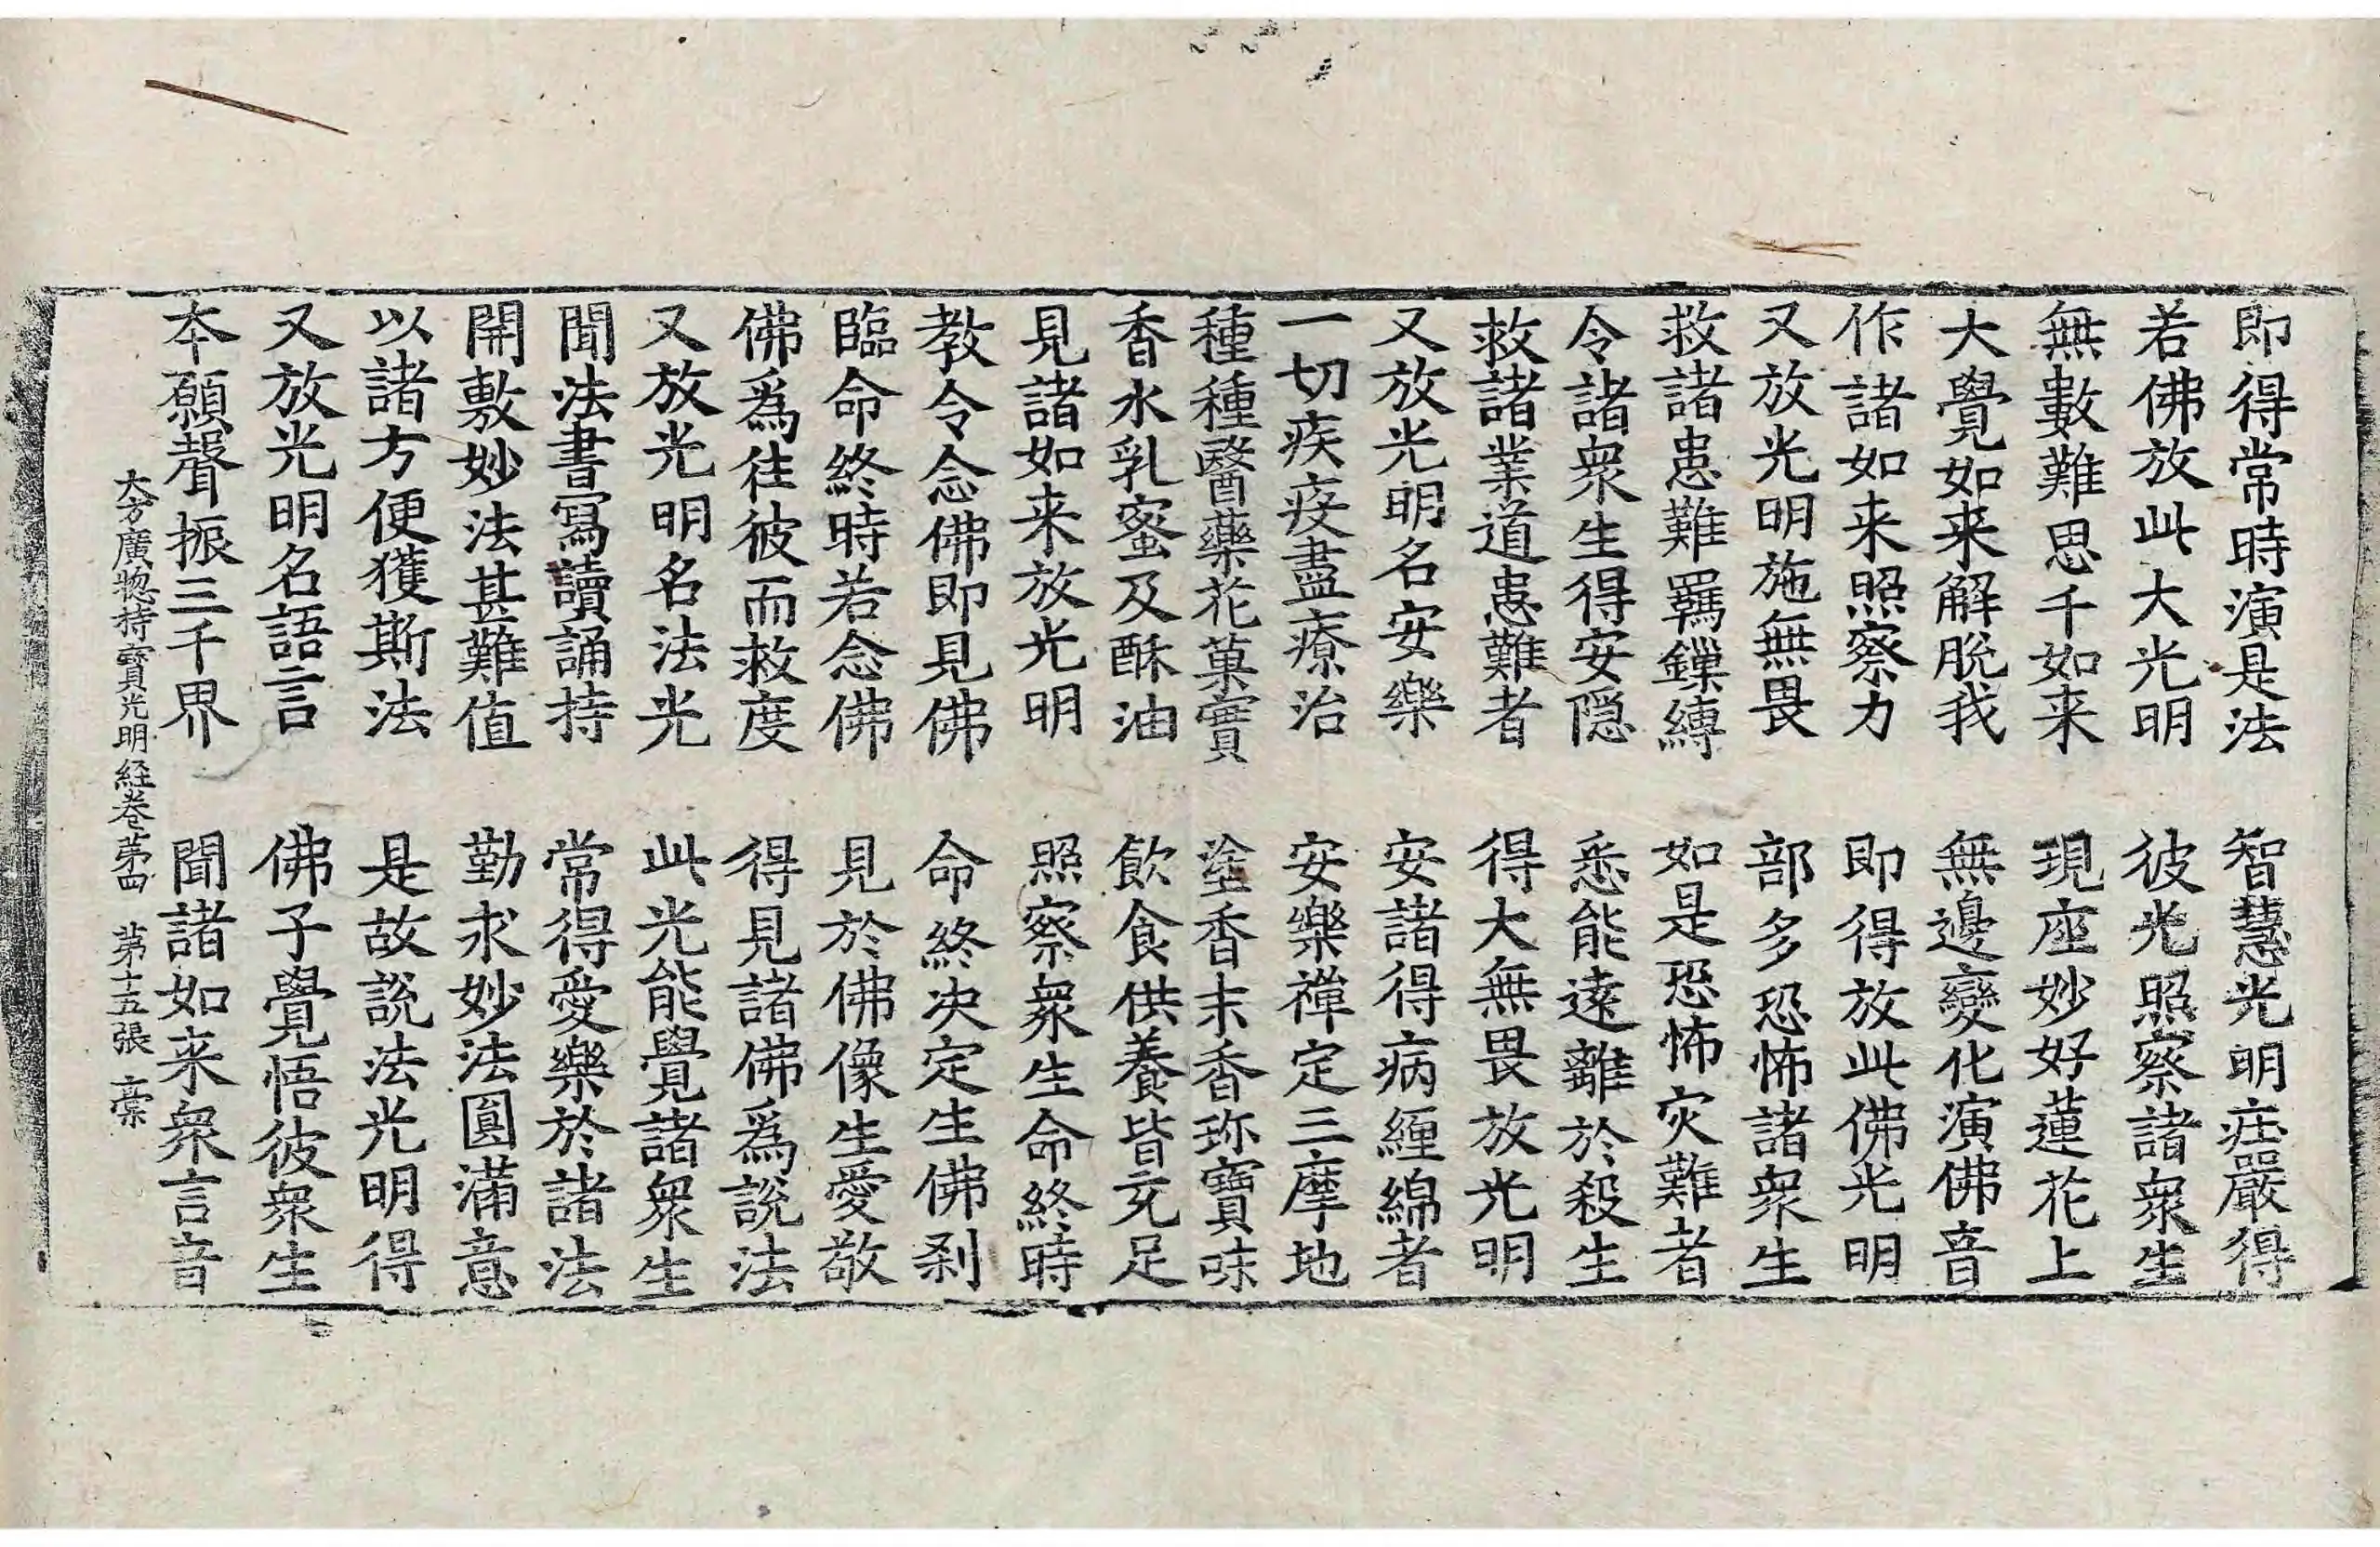 即得常時演是法　智慧光明莊嚴得
若佛放此大光明　彼光照察諸衆生
無數難思千如来　現座妙好蓮花上
大覺如来解脫我　無邊變化演佛音
作諸如来照察力　即得放此佛光明
又放光明施無畏　部多恐怖諸衆生
救諸患難羈鏁縛　如是恐怖灾難者
令諸衆生得安隠　悉能遠離於殺生
救諸業道患難者　得大無畏放光明
又放光明名安樂　安諸得病緾綿者
一切疾疫盡療治　安樂禪定三摩地
種種醫藥花菓實　塗香末香珎寶味
香水乳蜜及酥油　飲食供養皆充足
見諸如来放光明　照察衆生命終時
教令念佛即見佛　命終决定生佛刹
臨命終時若念佛　見於佛像生愛敬
佛爲往彼而救度　得見諸佛爲說法
又放光明名法光　此光能覺諸衆生
聞法書寫讀誦持　常得愛樂於諸法
開敷妙法甚難值　勤求妙法圓滿意
以諸方便獲斯法　是故說法光明得
又放光明名語言　佛子覺悟彼衆生
本願聲振三千界　聞諸如来衆言音
大方廣揔持寶光明経卷苐四　苐十五張　稾